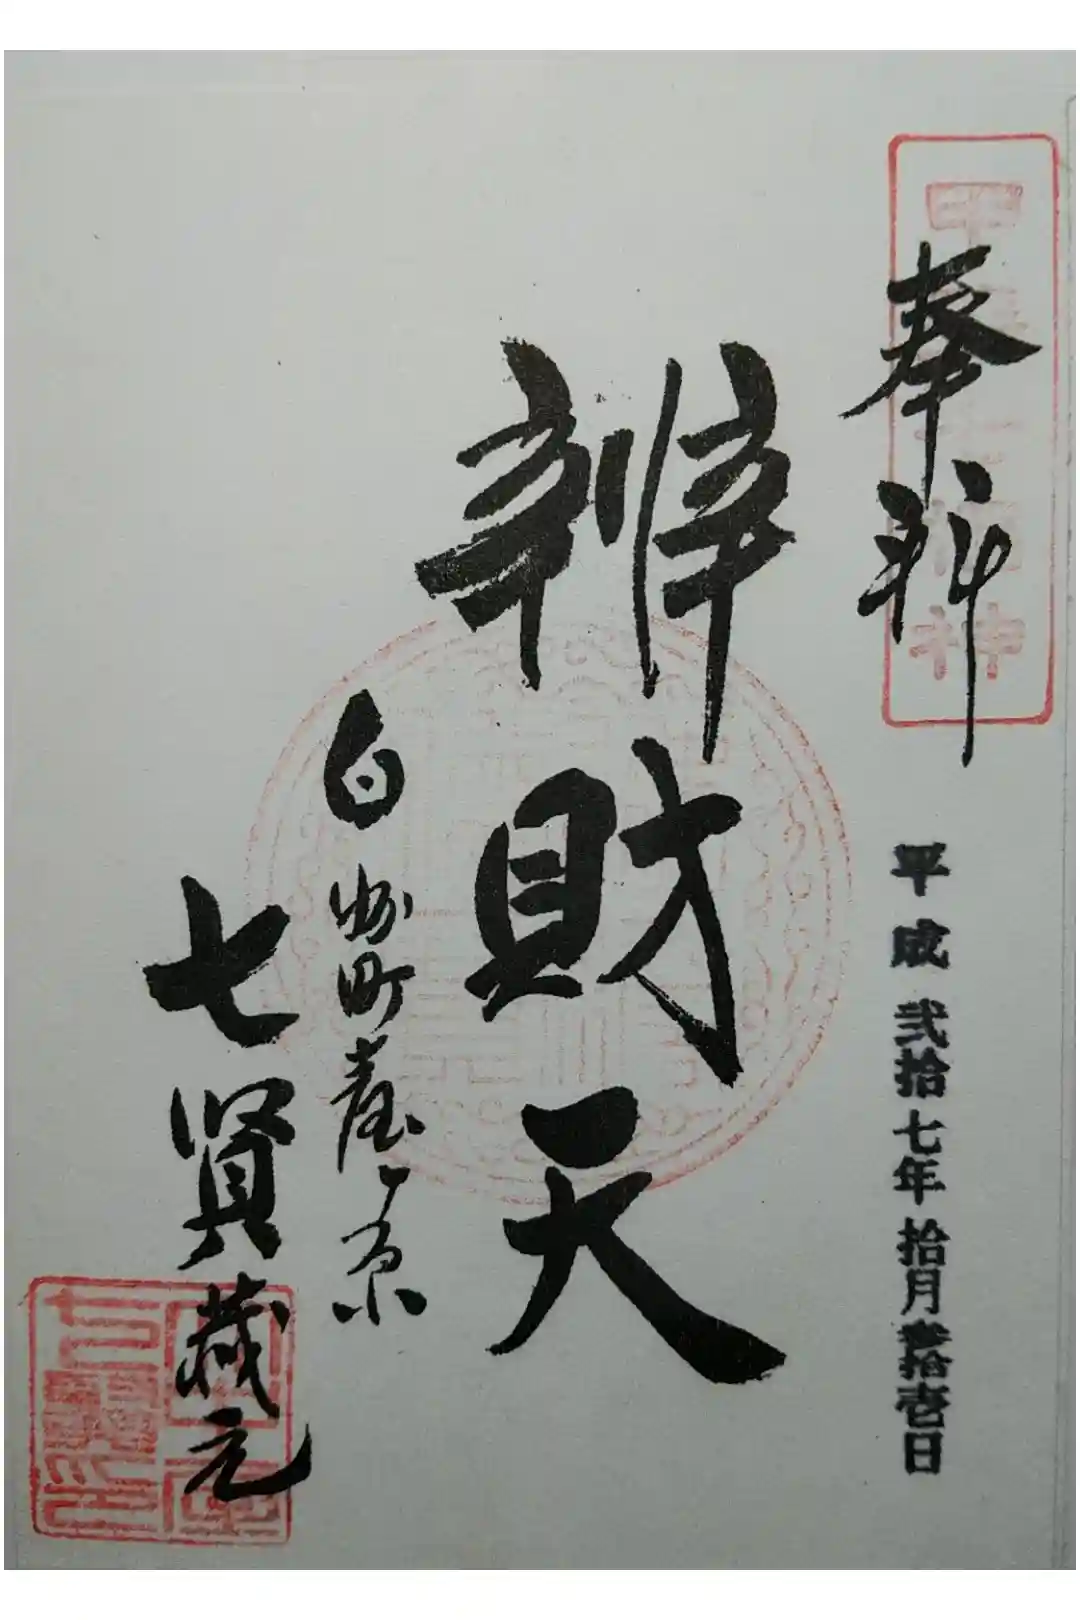 甲 七福神
奉拝
平成弐拾七年拾月参拾壱日
辨財天
白州町臺ヶ原
七賢蔵元